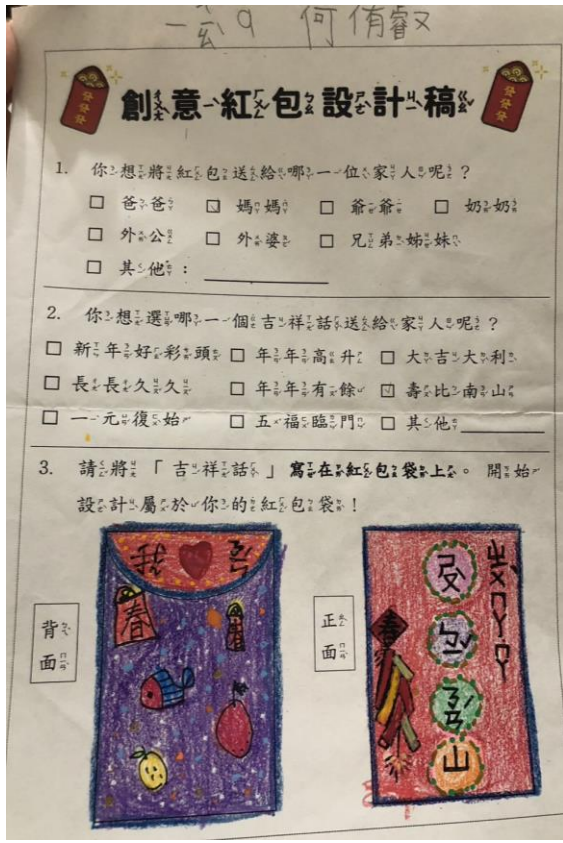 何侑叡
發發發
創意紅包設計稿
發發發
1. 你想將紅包送給哪一位家人呢？
□ 爸爸 ☑ 媽媽 □ 爺爺 □ 奶奶
□ 外公 □ 外婆 □ 兄弟姊妹
□ 其他：
2. 你想選哪一個吉祥話送給家人呢？
□ 新年好彩頭 □ 年年高升 □ 大吉大利
□ 長長久久 □ 年年有餘 ☑ 壽比南山
□ 一元復始 □ 五福臨門 □ 其他
3. 請將「吉祥話」寫在紅包袋上。開始
設計屬於你的紅包袋！
背面
我
春
春
正面
ㄓㄨˋㄇㄚㄇㄚ
春
ㄅㄧˇ
ㄋㄢˊ
山